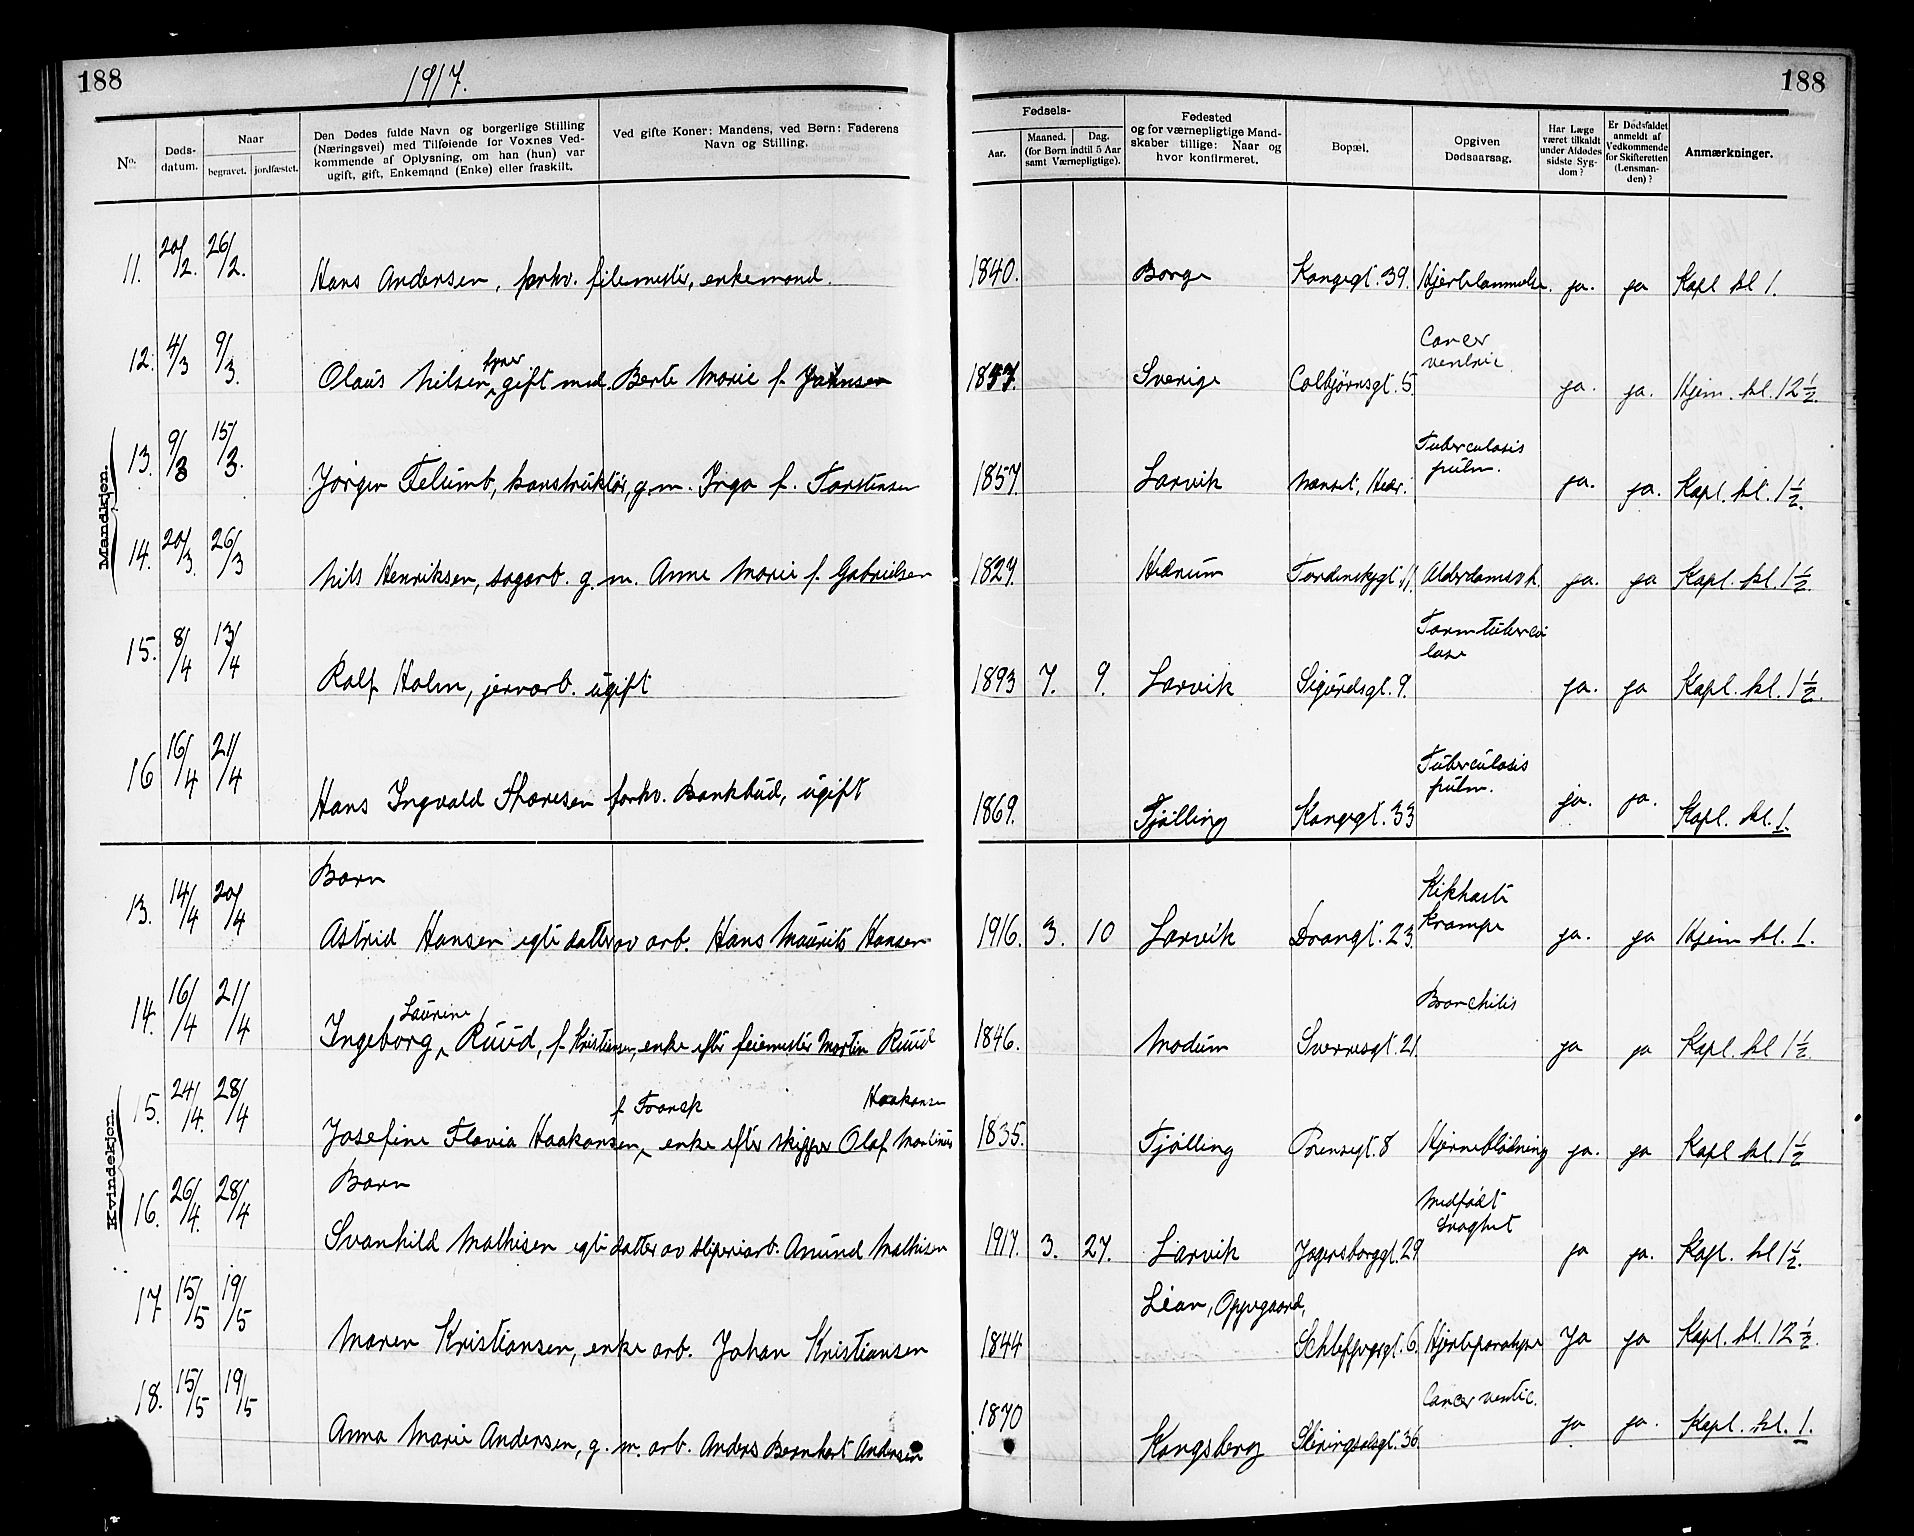 188 1917. 188
No. Døds-datum. Naar begravet. jordfæstet. Den Dødes fulde Navn og borgerlige Stilling (Næringsvei) med Tilføiende for Voxnes Vedkommende af Oplysning, om han (hun) var ugift, gift, Enkemand (Enke) eller fraskilt. Ved gifte Koner: Mandens, ved Børn: Faderens Navn og Stilling. Fødsels- Aar. Maaned. Dag. (for Børn indtil 5 Aar samt Værnepligtige). Fødested og for værnepligtige Mandskaber tillige: Naar og hvor konfirmeret. Bopæl. Opgiven Dødsaarsag. Har Læge været tilkaldt under Afdødes sidste Sygdom? Er Dødsfaldet anmeldt af Vedkommende for Skifteretten (Lensmanden)? Anmærkninger.
Mandkjøn.
11. 20/2. 26/2. Hans Andersen, forhv. filemester, enkemand. 1840. Borge Kongegt. 39. Hjertelammelse. ja. ja Kapl kl 1.
12. 4/3 9/3. Olaus Nilsen, gift med Berte Marie f. Johnsen 1857. Sverige Colbjørnsgt. 5. Cancer ventric ja. ja. Hjem. kl. 12 1/2.
13. 9/3 15/3. Jørgen Felumb, konstruktør, g. m. Inga f. Torstensen 1857. Larvik Nanset, Hedr. Tuberculosis pulm. ja. ja. Kapl. kl. 1 1/2.
14. 20/3. 26/3 Nils Henriksen, sagarb. g. m. Anne Marie f. Gabrielsen 1827. Hedrum Tordenskjgt. 11. Alderdomssvh. ja. ja Kapl. kl. 1 1/2.
15. 8/4 13/4 Rolf Holm, jernarb. ugift 1893 7. 9. Larvik Sigurdsgt. 9. Tarmtubercu lose ja. ja Kapl. kl. 1 1/2.
16 16/4 21/4 Hans Ingvald Thoresen forhv. Bankbud, ugift 1869. Tjølling Kongegt. 33 Tuberculosis pulm. ja. ja. Kapl. kl. 1.
Kvindekjøn.
Barn
13. 14/4 20/4 Astrid Hansen egte datter av arb. Hans Maurits Hansen 1916. 3. 10 Larvik Drangt. 23. Kikhoste Krampe ja. ja Hjem kl. 1.
14. 16/4 21/4 Ingeborg Laurine Ruud, f. Kristiansen, enke efter feiemester Martin Ruud 1846. Modum Sverresgt. 21. Bronchitis ja ja Kapl. kl 1 1/2.
15. 24/4. 28/4 Josefine Flavia Haakonsen f Transk, enke efter skipper Olaf Martinius Haakonsen 1835. Tjølling Prensegt. 8 Hjerneblødning ja. ja Kapl kl. 1 1/2
Barn
16. 26/4. 28/4 Svanhild Mathisen egte datter av sliperiarb. Anund Mathisen 1917. 3. 27. Larvik Jegersborggt. 29 Medfødt svaghet ja ja. Kapl. kl 1 1/2.
17 15/5 19/5 Maren Kristiansen, enke arb. Johan Kristiansen 1844 Lian, Opgaard, 6. Hjerteparalyse Ja ja Kapl. kl. 12 1/2.
18. 15/5 19/5 Anna Marie Andersen, g. m. arb. Anders Bernhart Andersen 1870 Kongsberg Skiringsalsgt. 36. Cancer ventic. ja ja. Kapl. kl. 1.